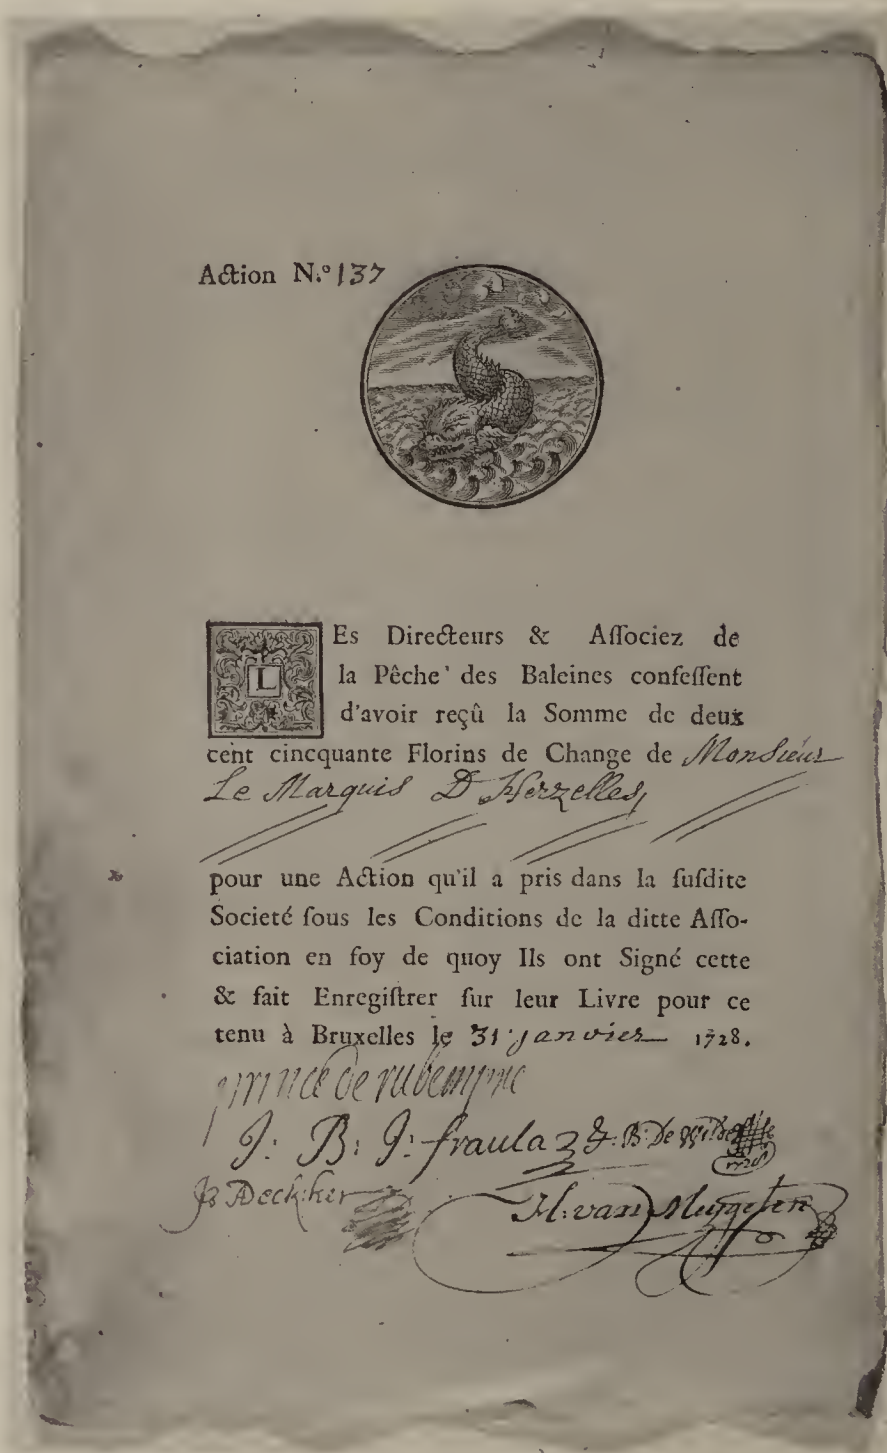 Action N.º 137
LEs Directeurs & Aſſociez de
la Pêche des Baleines confeſſent
d'avoir reçû la Somme de deux
cent cincquante Florins de Change de Monsieur
Le Marquis D'Herzelles,
pour une Action qu'il a pris dans la ſuſdite
Societé ſous les Conditions de la ditte Aſſo-
ciation en foy de quoy Ils ont Signé cette
& fait Enregiſtrer ſur leur Livre pour ce
tenu à Bruxelles le 31 janvier 1728.
prince de rubempré
J: B: J: fraula & J: B: De Wilde
JB Deckker
H: van